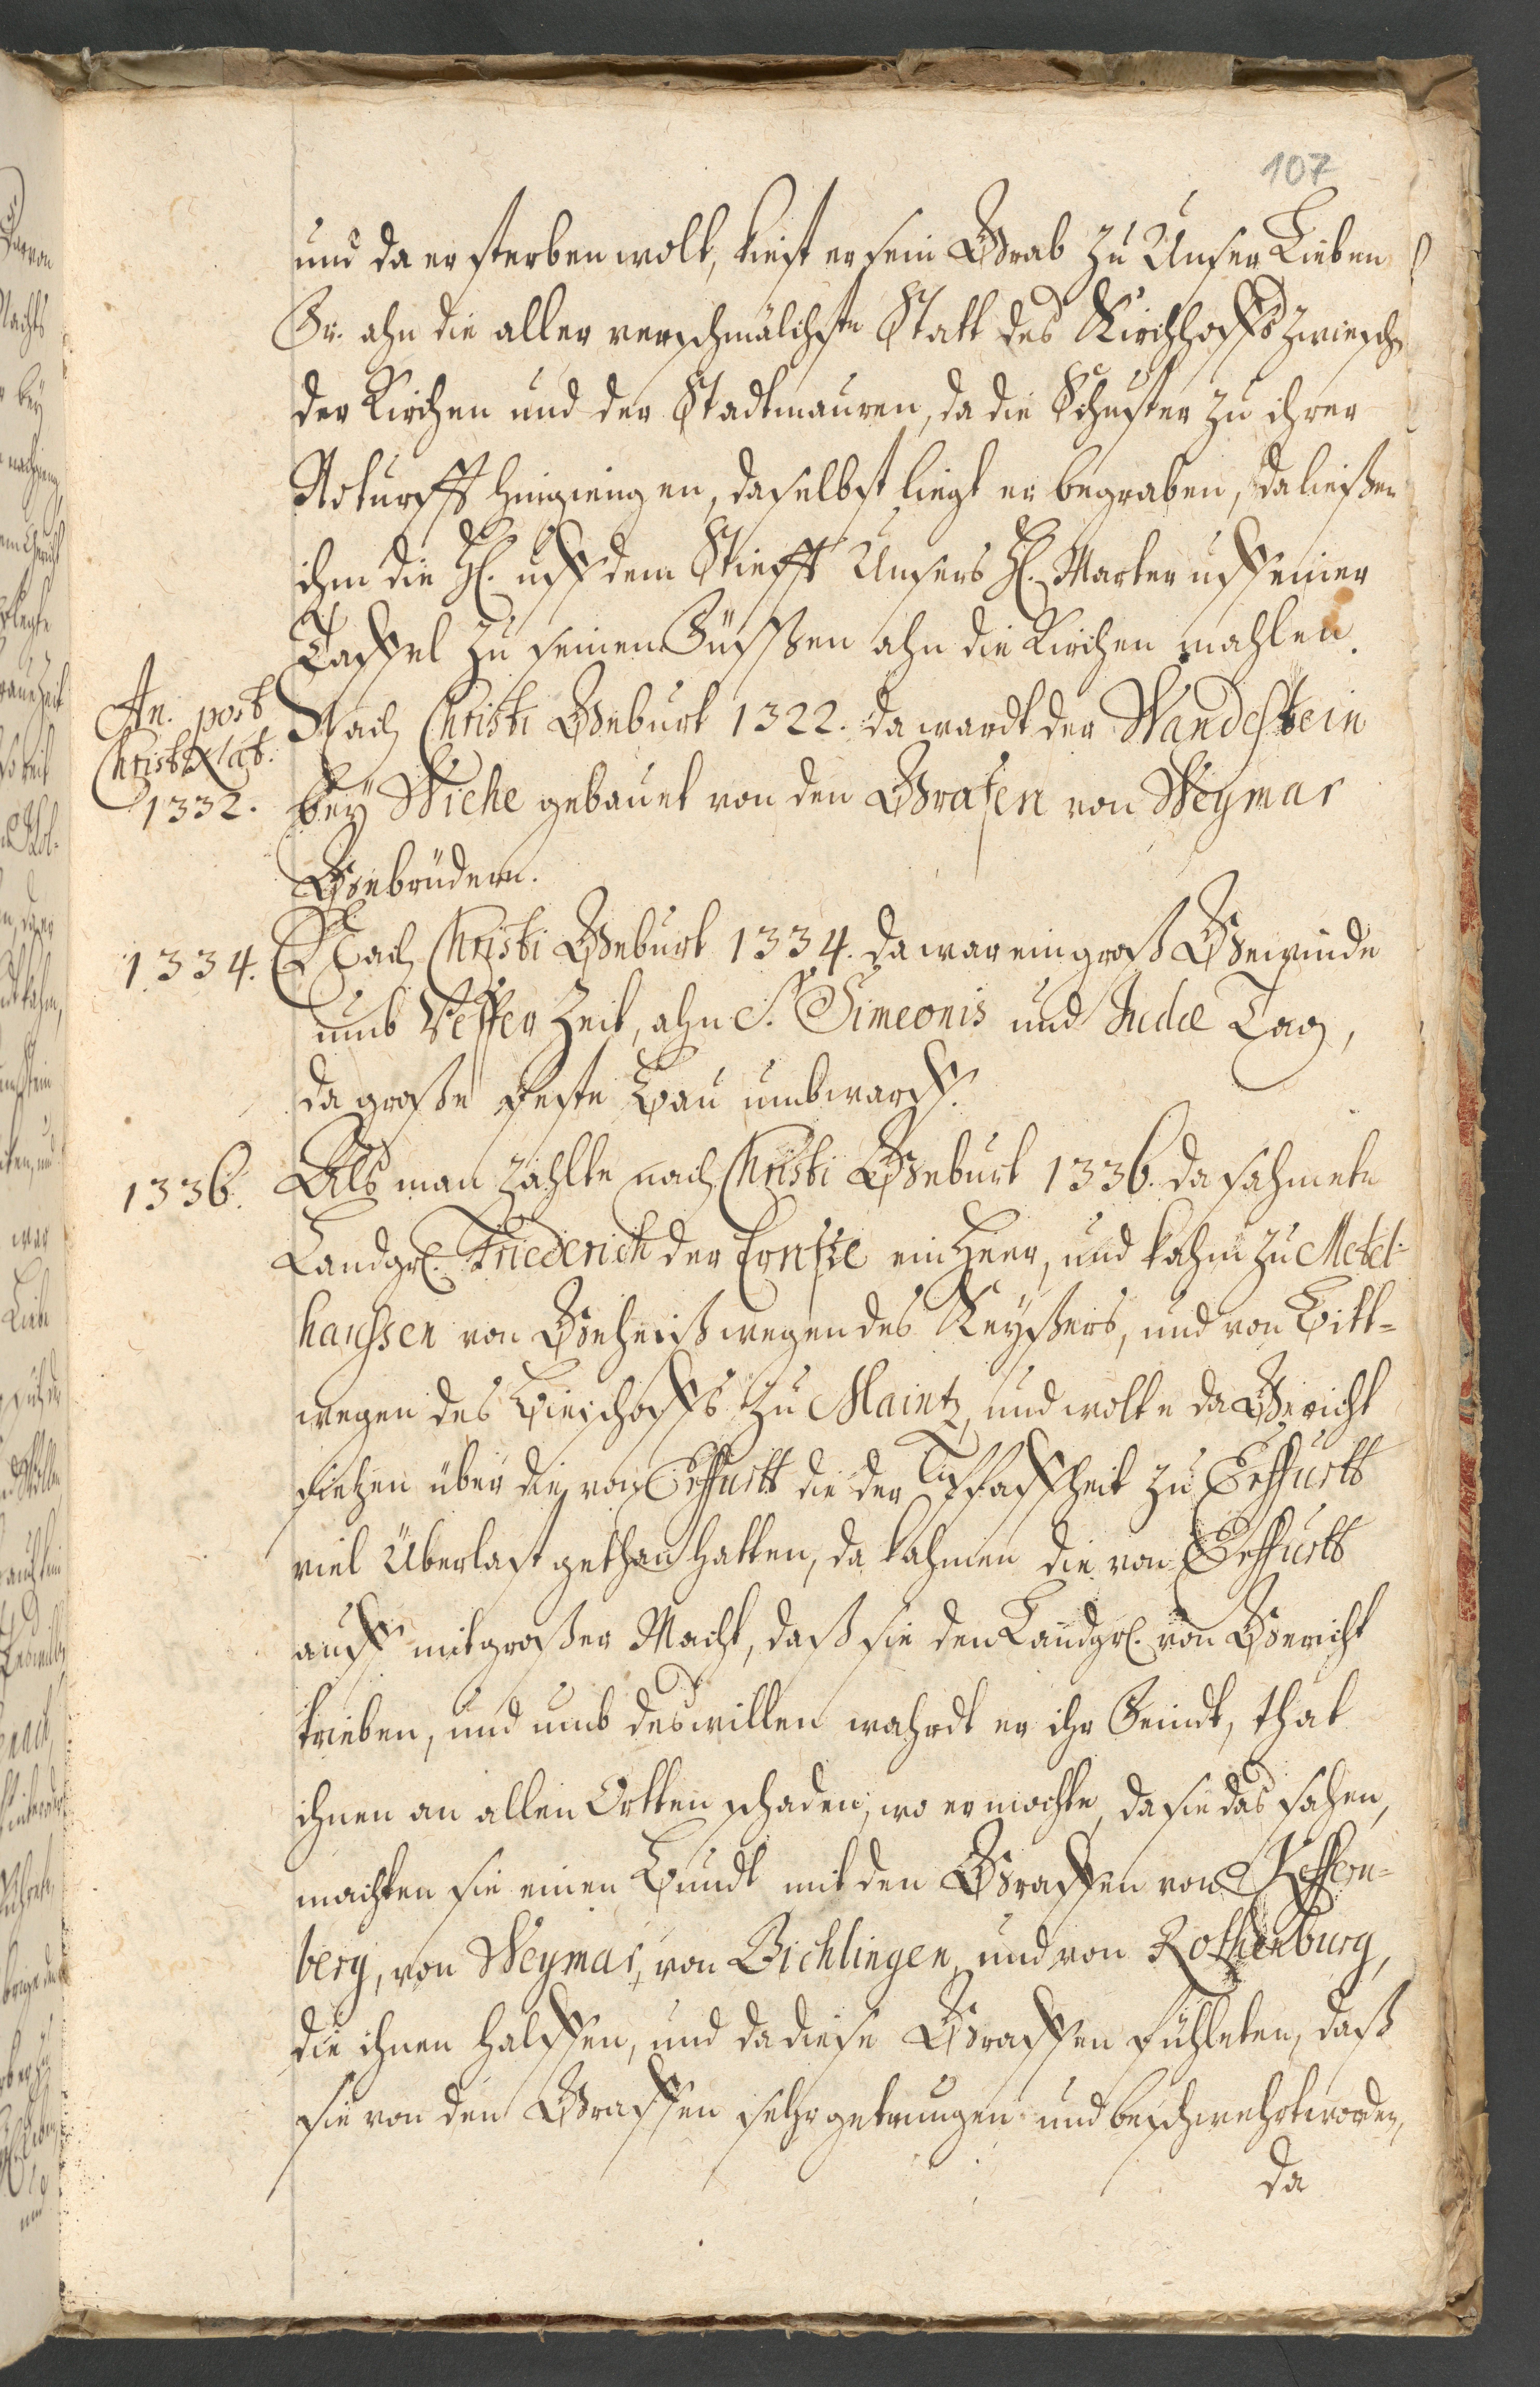 107
und da er sterben wolt, kiest er sein Grab zu Unser Lieben
Fr. ahn die aller verschmälichste Statt des Kirchhoffs zwischen
der Kirchen und der Stadtmauren, da die Schuster zu ihrer
Noturfft hingiengen, daselbst liegt er begraben, da ließen
ihm die H. uff dem Stiefft Unsers H. Marter uff einer
Taffel zu seinen Füssen ahn die Kirchen mahlen.
An. post
Christi Nat.
1332.
Nach Christi Geburt 1322. da wardt der Wandestein
bey Wiche gebauet von den Grafen von Weymar
Gebrüdern.
1334. Nach Christi Geburt 1334. da war ein groß Gewinde
umb Vesper Zeit, ahn S. Simeonis und Judæ Tag,
da große feste Bau umbwarff.
1336. Als man zahlte nach Christi Geburt 1336. da sahmete
Landgr. Friederich der Ernste ein Heer, und kahm zu Metel-
haussen von Geheiß wegen des Keyßers, und von Bitt-
wegen des Bieschoffs zu Maintz, und wolte da Gericht
sietzen über die von Erffurtt die der Pfaffheit zu Erffurtt
viel Überlast gethan hatten, da kahmen die von Erffurtt
auff mit großer Macht, daß sie den Landgr. von Gericht
trieben, und umb deswillen wahrdt er ihr Feindt, that
ihnen an allen Ortten schaden, wo er mochte, da sie das sahen,
machten sie einen Bundt mit den Graffen von Keffern-
berg, von Weymar, von Bichlingen, und von Rothenburg,
die ihnen halffen, und da diese Graffen fühleten, daß
sie von den Graffen sehr getrungen und beschwehrt worden,
da